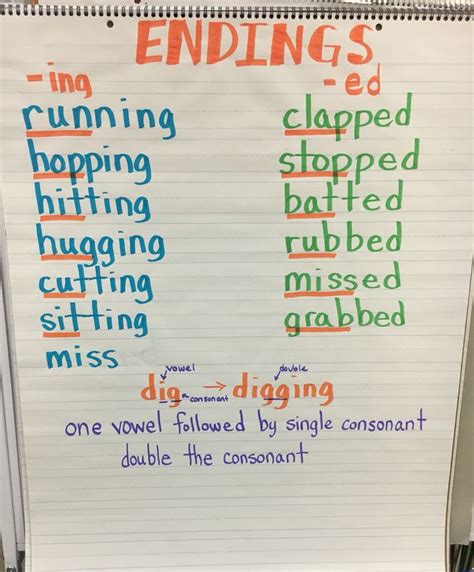 ENDINGS
-ing -ed
running clapped
hopping stopped
hitting batted
hugging rubbed
cutting missed
sitting grabbed
miss
vowel double
dig → digging
consonant
one vowel followed by single consonant
double the consonant